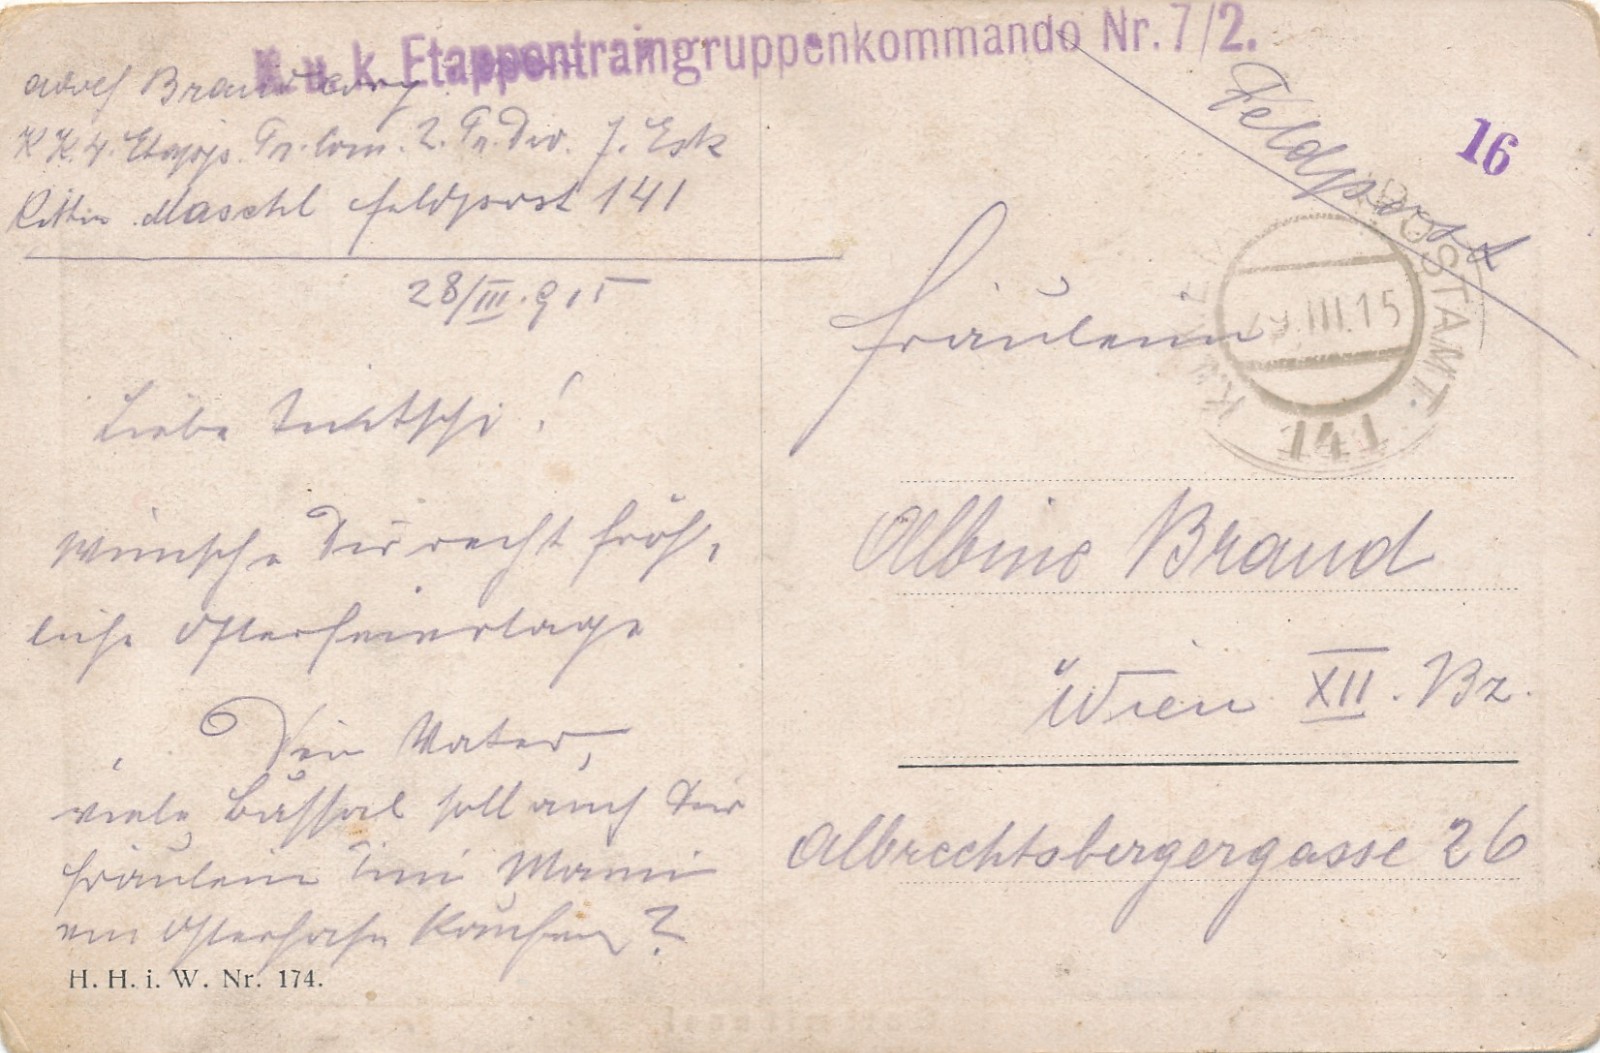 K. u. k. Etappentraingruppenkommando Nr. 7/2.
Adolf Brand
K K. 4. Etapp. Tr. Com. 2. Tr. Div. 7. Esk
Feldpost 141
28/III. 915
Liebe
wünsche Dir recht fröh,
liche Osterfeiertage
Dein Vater,
viele soll auch Dir
Fräulein Mami
ein Osterhase kaufen ?
H. H. i. W. Nr. 174.
Feldpost
16
POSTAMT.
29.III.15
141
Fräulein
Albine Brand
Wien XII. Bz.
Albrechtsbergergasse 26